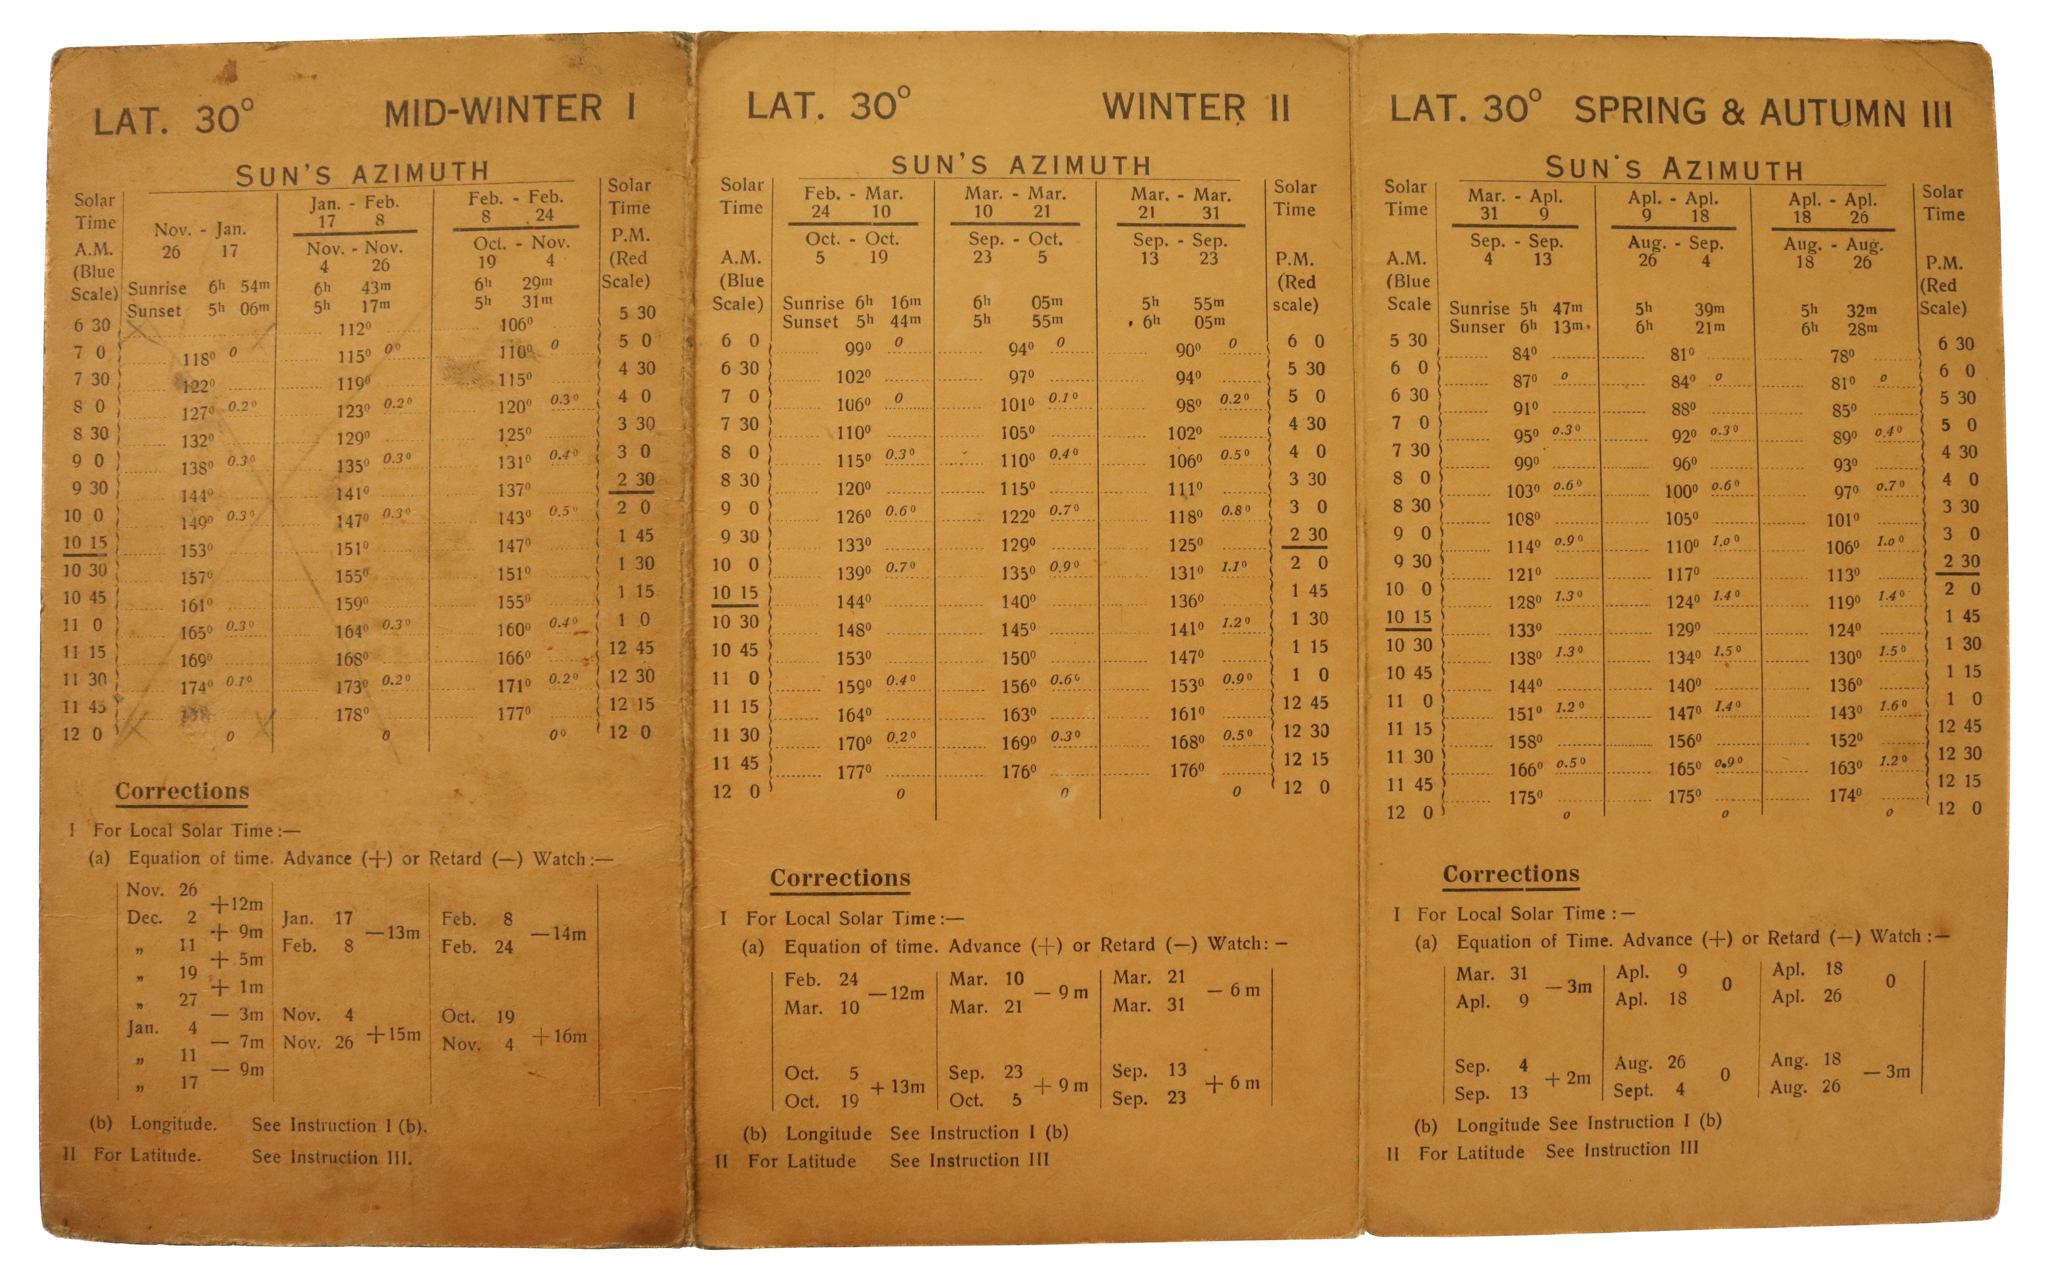 LAT. 30° MID-WINTER I
SUN'S AZIMUTH
Solar Time A.M. (Blue Scale)
Nov. - Jan.
26 17
Jan. - Feb.
17 8
Nov. - Nov.
4 26
Feb. - Feb.
8 24
Oct. - Nov.
19 4
Solar Time P.M. (Red Scale)
Sunrise 6h 54m 6h 43m 6h 29m
Sunset 5h 06m 5h 17m 5h 31m
6 30 112° 106° 5 30
7 0 118° 0 115° 0° 110° 0 5 0
7 30 122° 119° 115° 4 30
8 0 127° 0.2° 123° 0.2° 120° 0.3° 4 0
8 30 132° 129° 125° 3 30
9 0 138° 0.3° 135° 0.3° 131° 0.4° 3 0
9 30 144° 141° 137° 2 30
10 0 149° 0.3° 147° 0.3° 143° 0.5° 2 0
10 15 153° 151° 147° 1 45
10 30 157° 155° 151° 1 30
10 45 161° 159° 155° 1 15
11 0 165° 0.3° 164° 0.3° 160° 0.4° 1 0
11 15 169° 168° 166° 12 45
11 30 174° 0.1° 173° 0.2° 171° 0.2° 12 30
11 45 178° 177° 12 15
12 0 0 0 0° 12 0
Corrections
I For Local Solar Time :—
(a) Equation of time. Advance (+) or Retard (—) Watch :—
Nov. 26
+12m
Dec. 2
+ 9m
„ 11
+ 5m
„ 19
+ 1m
„ 27
— 3m
Jan. 4
— 7m
„ 11
— 9m
„ 17
Jan. 17
—13m
Feb. 8
Nov. 4
+15m
Nov. 26
Feb. 8
—14m
Feb. 24
Oct. 19
+16m
Nov. 4
(b) Longitude. See Instruction I (b).
II For Latitude. See Instruction III.
LAT. 30° WINTER II
SUN'S AZIMUTH
Solar Time A.M. (Blue Scale)
Feb. - Mar.
24 10
Oct. - Oct.
5 19
Mar. - Mar.
10 21
Sep. - Oct.
23 5
Mar. - Mar.
21 31
Sep. - Sep.
13 23
Solar Time P.M. (Red scale)
Sunrise 6h 16m 6h 05m 5h 55m
Sunset 5h 44m 5h 55m 6h 05m
6 0 99° 0 94° 0 90° 0 6 0
6 30 102° 97° 94° 5 30
7 0 106° 0 101° 0.1° 98° 0.2° 5 0
7 30 110° 105° 102° 4 30
8 0 115° 0.3° 110° 0.4° 106° 0.5° 4 0
8 30 120° 115° 111° 3 30
9 0 126° 0.6° 122° 0.7° 118° 0.8° 3 0
9 30 133° 129° 125° 2 30
10 0 139° 0.7° 135° 0.9° 131° 1.1° 2 0
10 15 144° 140° 136° 1 45
10 30 148° 145° 141° 1.2° 1 30
10 45 153° 150° 147° 1 15
11 0 159° 0.4° 156° 0.6° 153° 0.9° 1 0
11 15 164° 163° 161° 12 45
11 30 170° 0.2° 169° 0.3° 168° 0.5° 12 30
11 45 177° 176° 176° 12 15
12 0 0 0 0 12 0
Corrections
I For Local Solar Time :—
(a) Equation of time. Advance (+) or Retard (—) Watch: —
Feb. 24
—12m
Mar. 10
Oct. 5
+13m
Oct. 19
Mar. 10
— 9 m
Mar. 21
Sep. 23
+ 9 m
Oct. 5
Mar. 21
— 6 m
Mar. 31
Sep. 13
+ 6 m
Sep. 23
(b) Longitude See Instruction I (b)
II For Latitude See Instruction III
LAT. 30° SPRING & AUTUMN III
SUN'S AZIMUTH
Solar Time A.M. (Blue Scale
Mar. - Apl.
31 9
Sep. - Sep.
4 13
Apl. - Apl.
9 18
Aug. - Sep.
26 4
Apl. - Apl.
18 26
Aug. - Aug.
18 26
Solar Time P.M. (Red Scale)
Sunrise 5h 47m 5h 39m 5h 32m
Sunser 6h 13m. 6h 21m 6h 28m
5 30 84° 81° 78° 6 30
6 0 87° 0 84° 0 81° 0 6 0
6 30 91° 88° 85° 5 30
7 0 95° 0.3° 92° 0.3° 89° 0.4° 5 0
7 30 99° 96° 93° 4 30
8 0 103° 0.6° 100° 0.6° 97° 0.7° 4 0
8 30 108° 105° 101° 3 30
9 0 114° 0.9° 110° 1.0° 106° 1.0° 3 0
9 30 121° 117° 113° 2 30
10 0 128° 1.3° 124° 1.4° 119° 1.4° 2 0
10 15 133° 129° 124° 1 45
10 30 138° 1.3° 134° 1.5° 130° 1.5° 1 30
10 45 144° 140° 136° 1 15
11 0 151° 1.2° 147° 1.4° 143° 1.6° 1 0
11 15 158° 156° 152° 12 45
11 30 166° 0.5° 165° 0.9° 163° 1.2° 12 30
11 45 175° 175° 174° 12 15
12 0 0 0 0 12 0
Corrections
I For Local Solar Time : —
(a) Equation of Time. Advance (+) or Retard (—) Watch :—
Mar. 31
— 3m
Apl. 9
Sep. 4
+ 2m
Sep. 13
Apl. 9
0
Apl. 18
Aug. 26
0
Sept. 4
Apl. 18
0
Apl. 26
Ang. 18
— 3m
Aug. 26
(b) Longitude See Instruction I (b)
II For Latitude See Instruction III